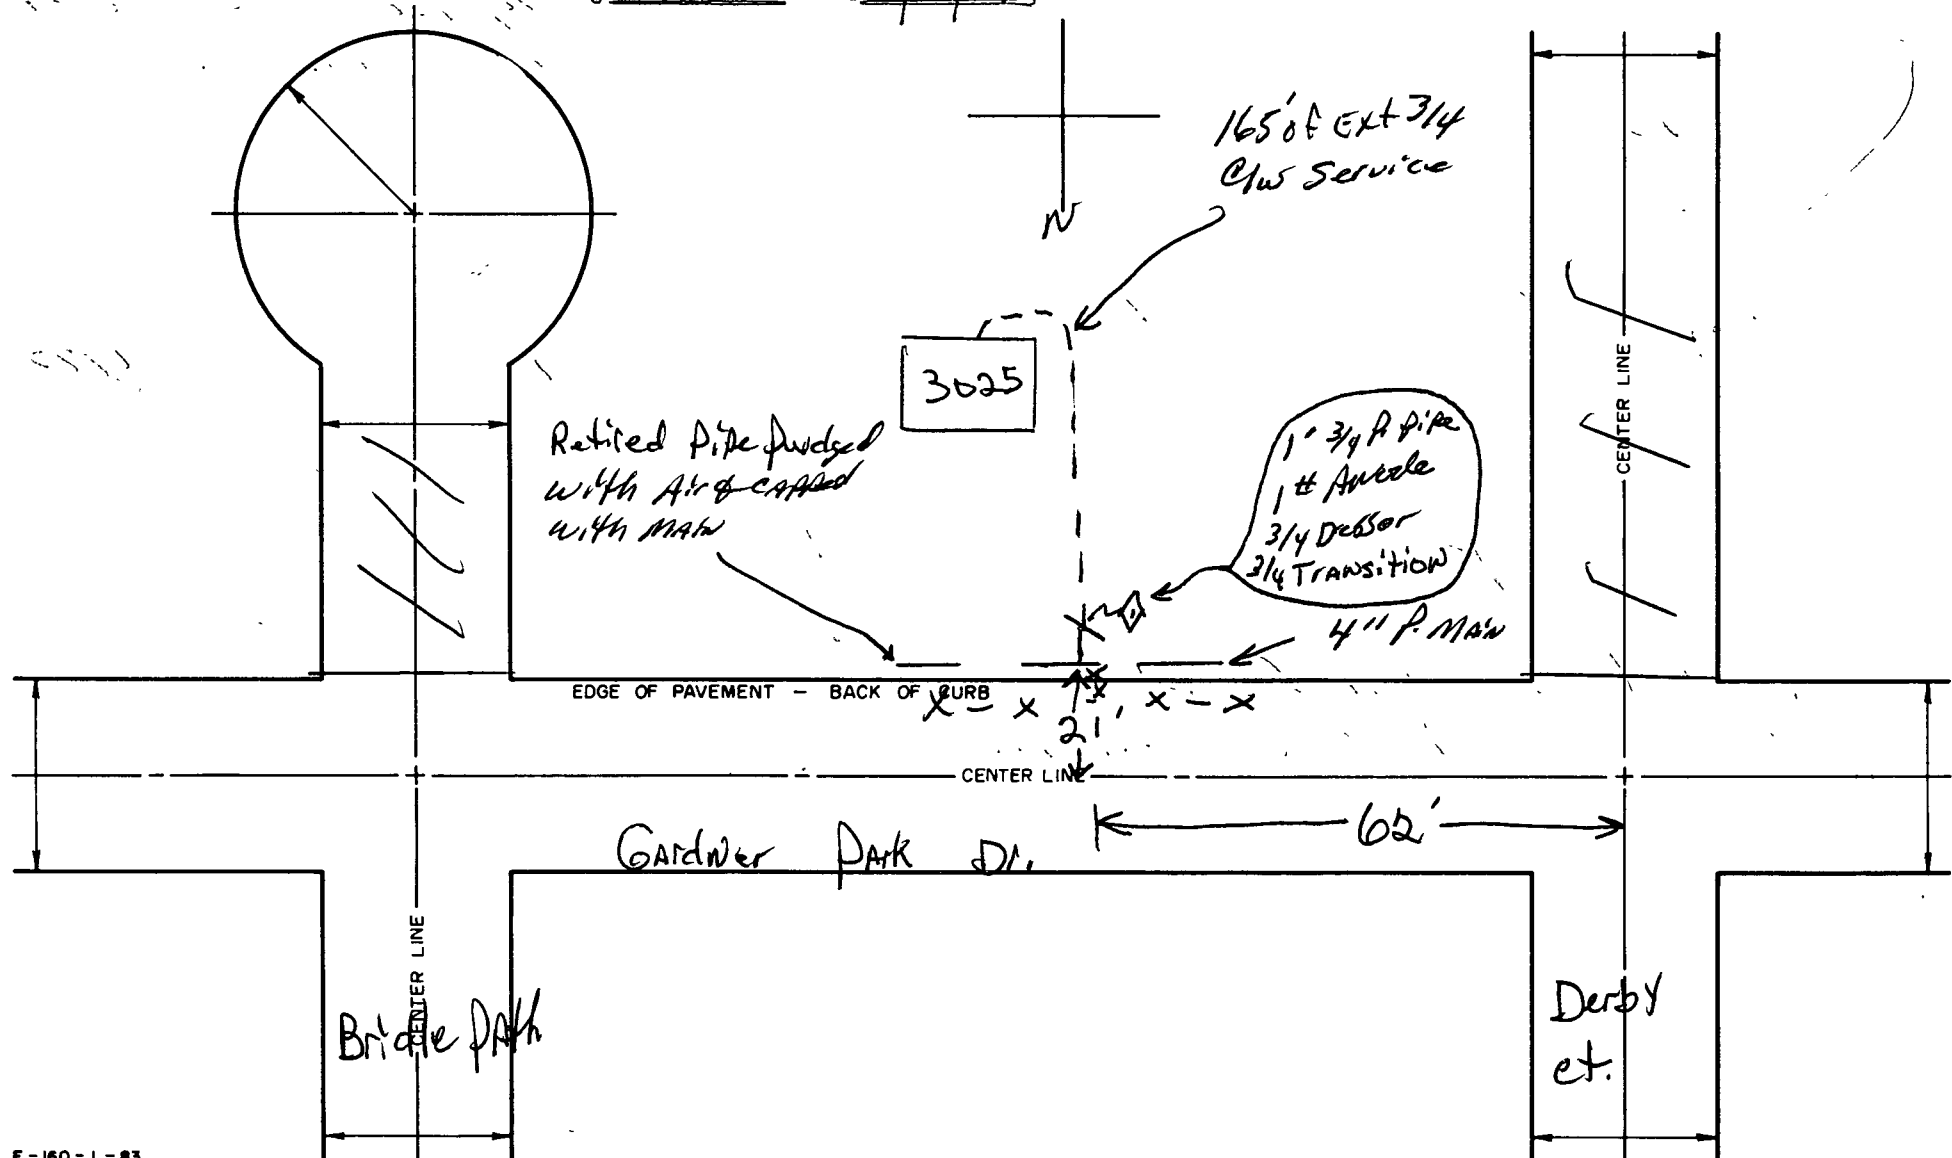 165' of Ext 3/4
C/W Service
N
3025
CENTER LINE
Retired Pipe purdged
with Air & CAPPed
with MAIN
1" 3/4 P. Pipe
1 # Anode
3/4 Dessor
3/4 Transition
4" P. MAIN
EDGE OF PAVEMENT - BACK OF CURB
x - x x - x
21'
CENTER LINE
62'
GArdNer PArk Dr.
CENTER LINE
Bridle PAth
Derby
ct.
F-160-1-83